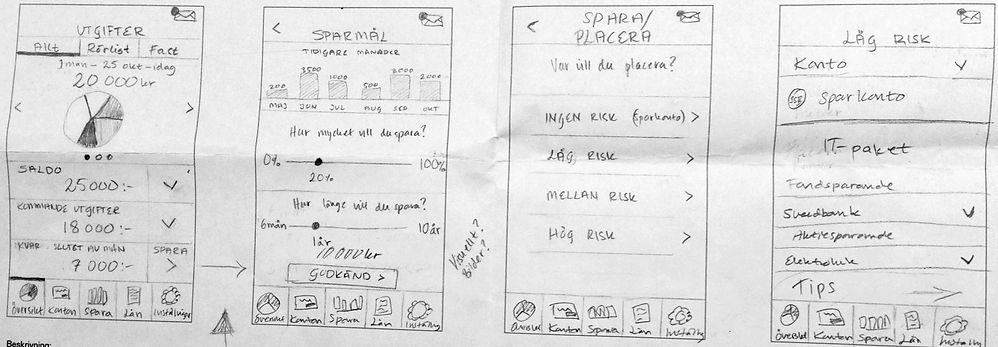 UTGIFTER
Allt Rörligt Fast
1 mån - 25 okt - idag
20 000 kr
< >
SALDO
25000:-
KOMMANDE UTGIFTER
18 000:-
KVAR SLUTET AV MÅN SPARA
7 000:- >
Översikt Konton Spara Lån Inställningar
Beskrivning:
<
SPARMÅL
TIDIGARE MÅNADER
200 3500 1000 500 3000 2000
MAJ JUN JUL AUG SEP OKT
Hur mycket vill du spara?
0% 100%
20%
Hur länge vill du spara?
6mån 10år
1år
10000kr
GODKÄND >
Översikt Konton Spara Lån Inställn
Visuellt?
Bilder?
<
SPARA/
PLACERA
Var vill du placera?
INGEN RISK (Sparkonto) >
LÅG RISK >
MELLAN RISK >
HÖG RISK >
Översikt Konton Spara Lån Inställn
LÅG RISK
Konto
Sparkonto
IT-paket
Fondsparande
Swedbank
Aktiesparande
Elektrolux
Tips
Översikt Konton Spara Lån Inställn